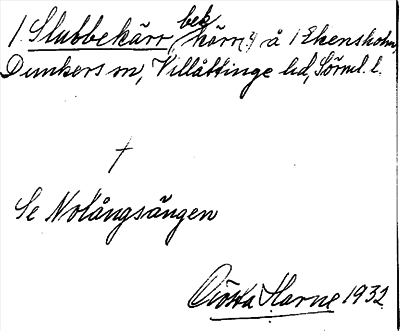 / Slubbekärr bek. kärr :/ å / Ekensholm,
Dunkers sn, Villåttinge hd, Sörml. l.
†
Se Nolångsängen
Gösta Harne 1932